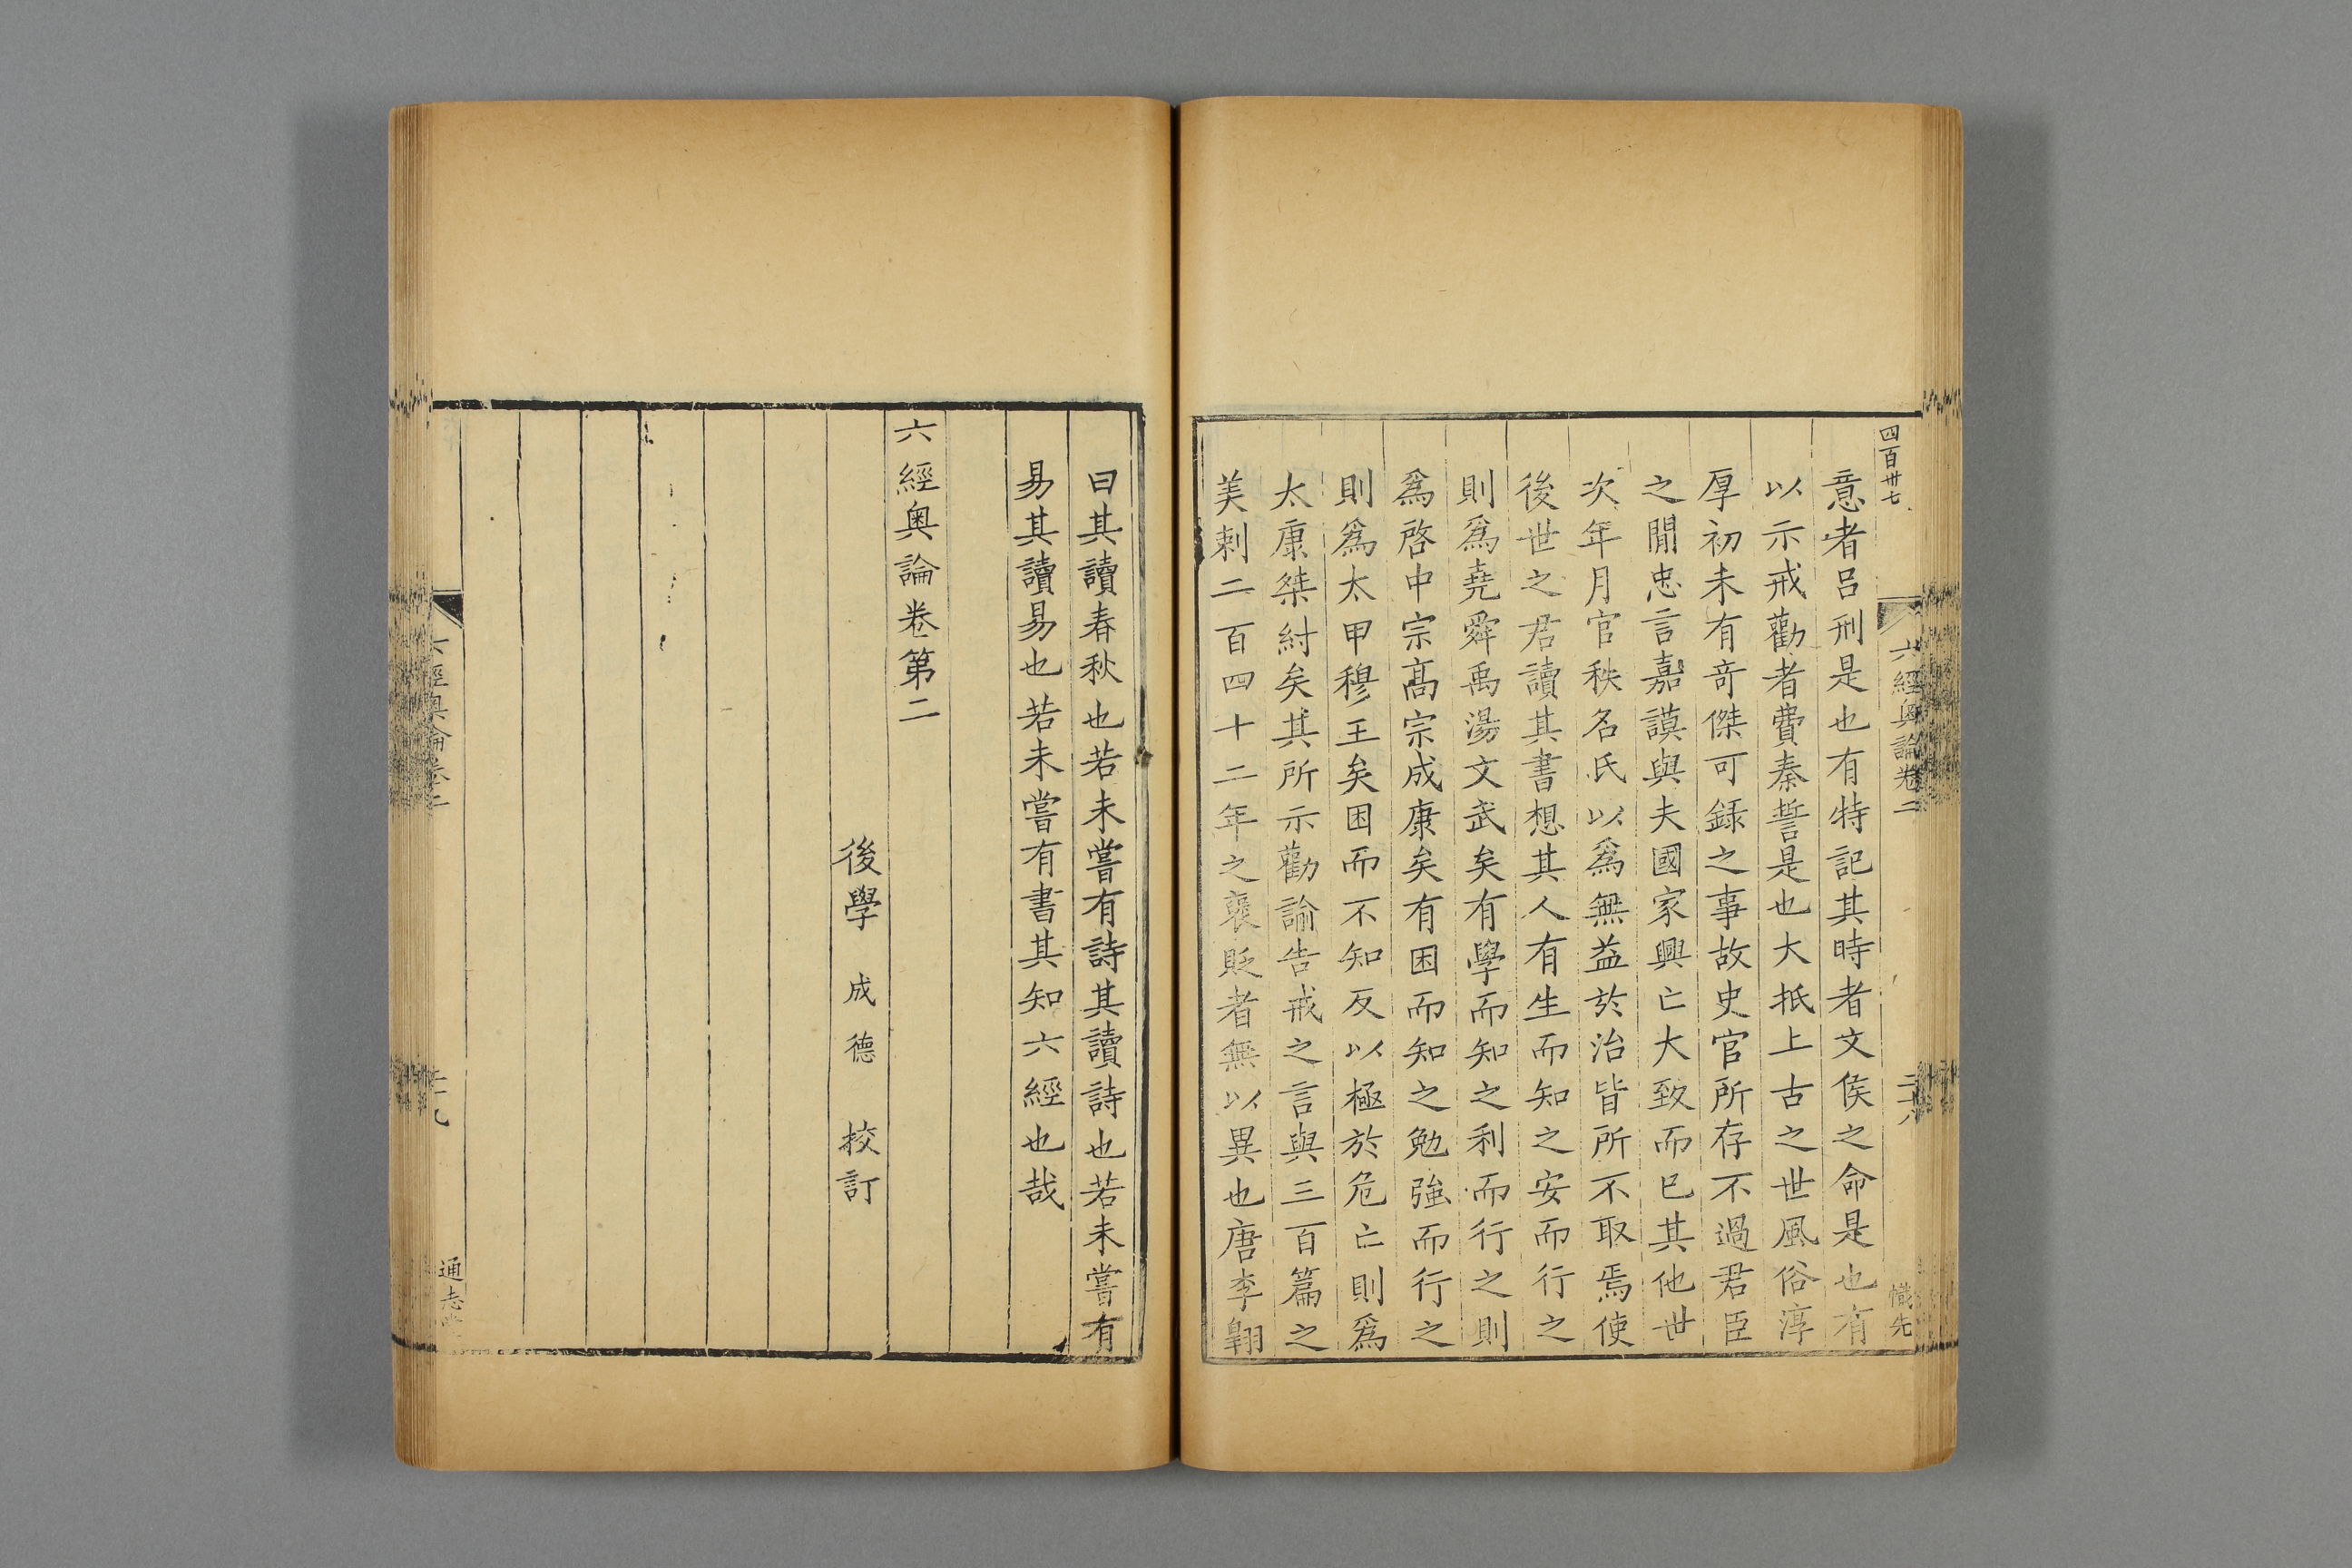 四百卅七
六經奧論卷二
二十八
幟先
意者呂刑是也有特記其時者文侯之命是也有
以示戒勸者費秦誓是也大抵上古之世風俗淳
厚初未有奇傑可録之事故史官所存不過君臣
之閒忠言嘉謨與夫國家興亡大致而已其他世
次年月官秩名氏以爲無益於治皆所不取焉使
後世之君讀其書想其人有生而知之安而行之
則爲堯舜禹湯文武矣有學而知之利而行之則
爲啓中宗高宗成康矣有困而知之勉強而行之
則爲太甲穆王矣困而不知反以極於危亡則爲
太康桀紂矣其所示勸諭告戒之言與三百篇之
美刺二百四十二年之襃貶者無以異也唐李翶
曰其讀春秋也若未嘗有詩其讀詩也若未嘗有
易其讀易也若未嘗有書其知六經也哉
六經奧論卷第二
後學 成德 校訂
六經奧論卷二
二十九
通志堂